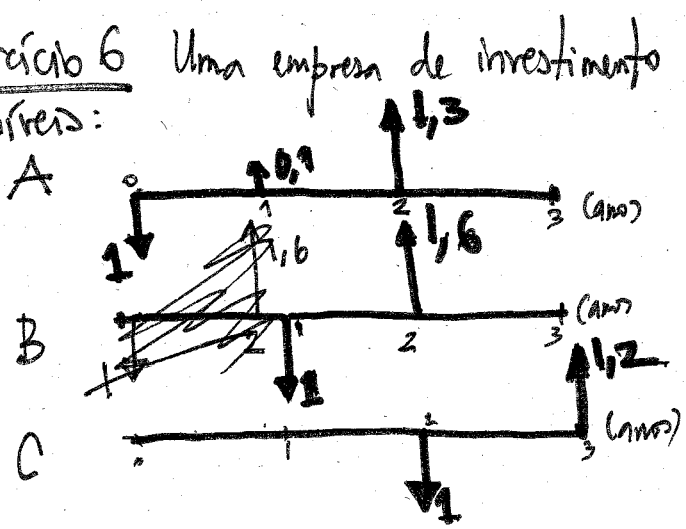 rcício 6 Uma empresa de investimento
níveis:
1,3
A 0 0,1
1 2 3 (anos)
1
1,6 1,6
B 1 2 3 (anos)
1 1,2
C 0 1 2 3 (anos)
1